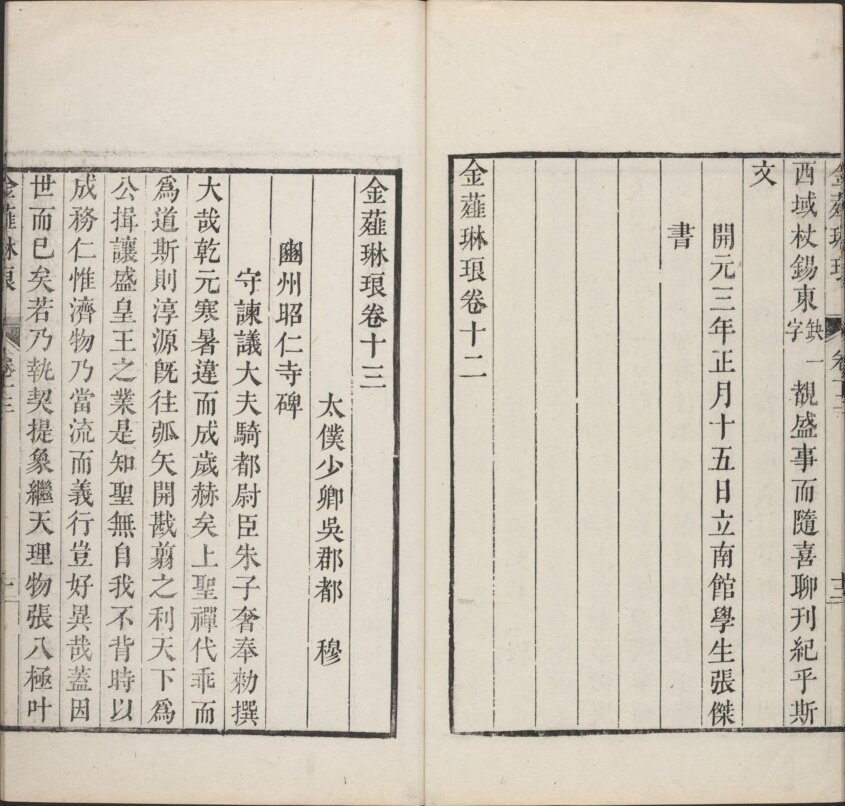 西域杖錫東缺一字覩盛事而隨喜聊刊紀乎斯
文
開元三年正月十五日立南館學生張傑
書
金薤琳琅卷十二
金薤琳琅卷十三
太僕少卿吳郡都 穆
豳州昭仁寺碑
守諫議大夫騎都尉臣朱子奢奉勑撰
大哉乾元寒暑違而成歲赫矣上聖禪代乖而
爲道斯則淳源旣往弧矢開戡翦之利天下爲
公揖讓盛皇王之業是知聖無自我不背時以
成務仁惟濟物乃當流而義行豈好異哉蓋因
世而已矣若乃執契提象繼天理物張八極叶